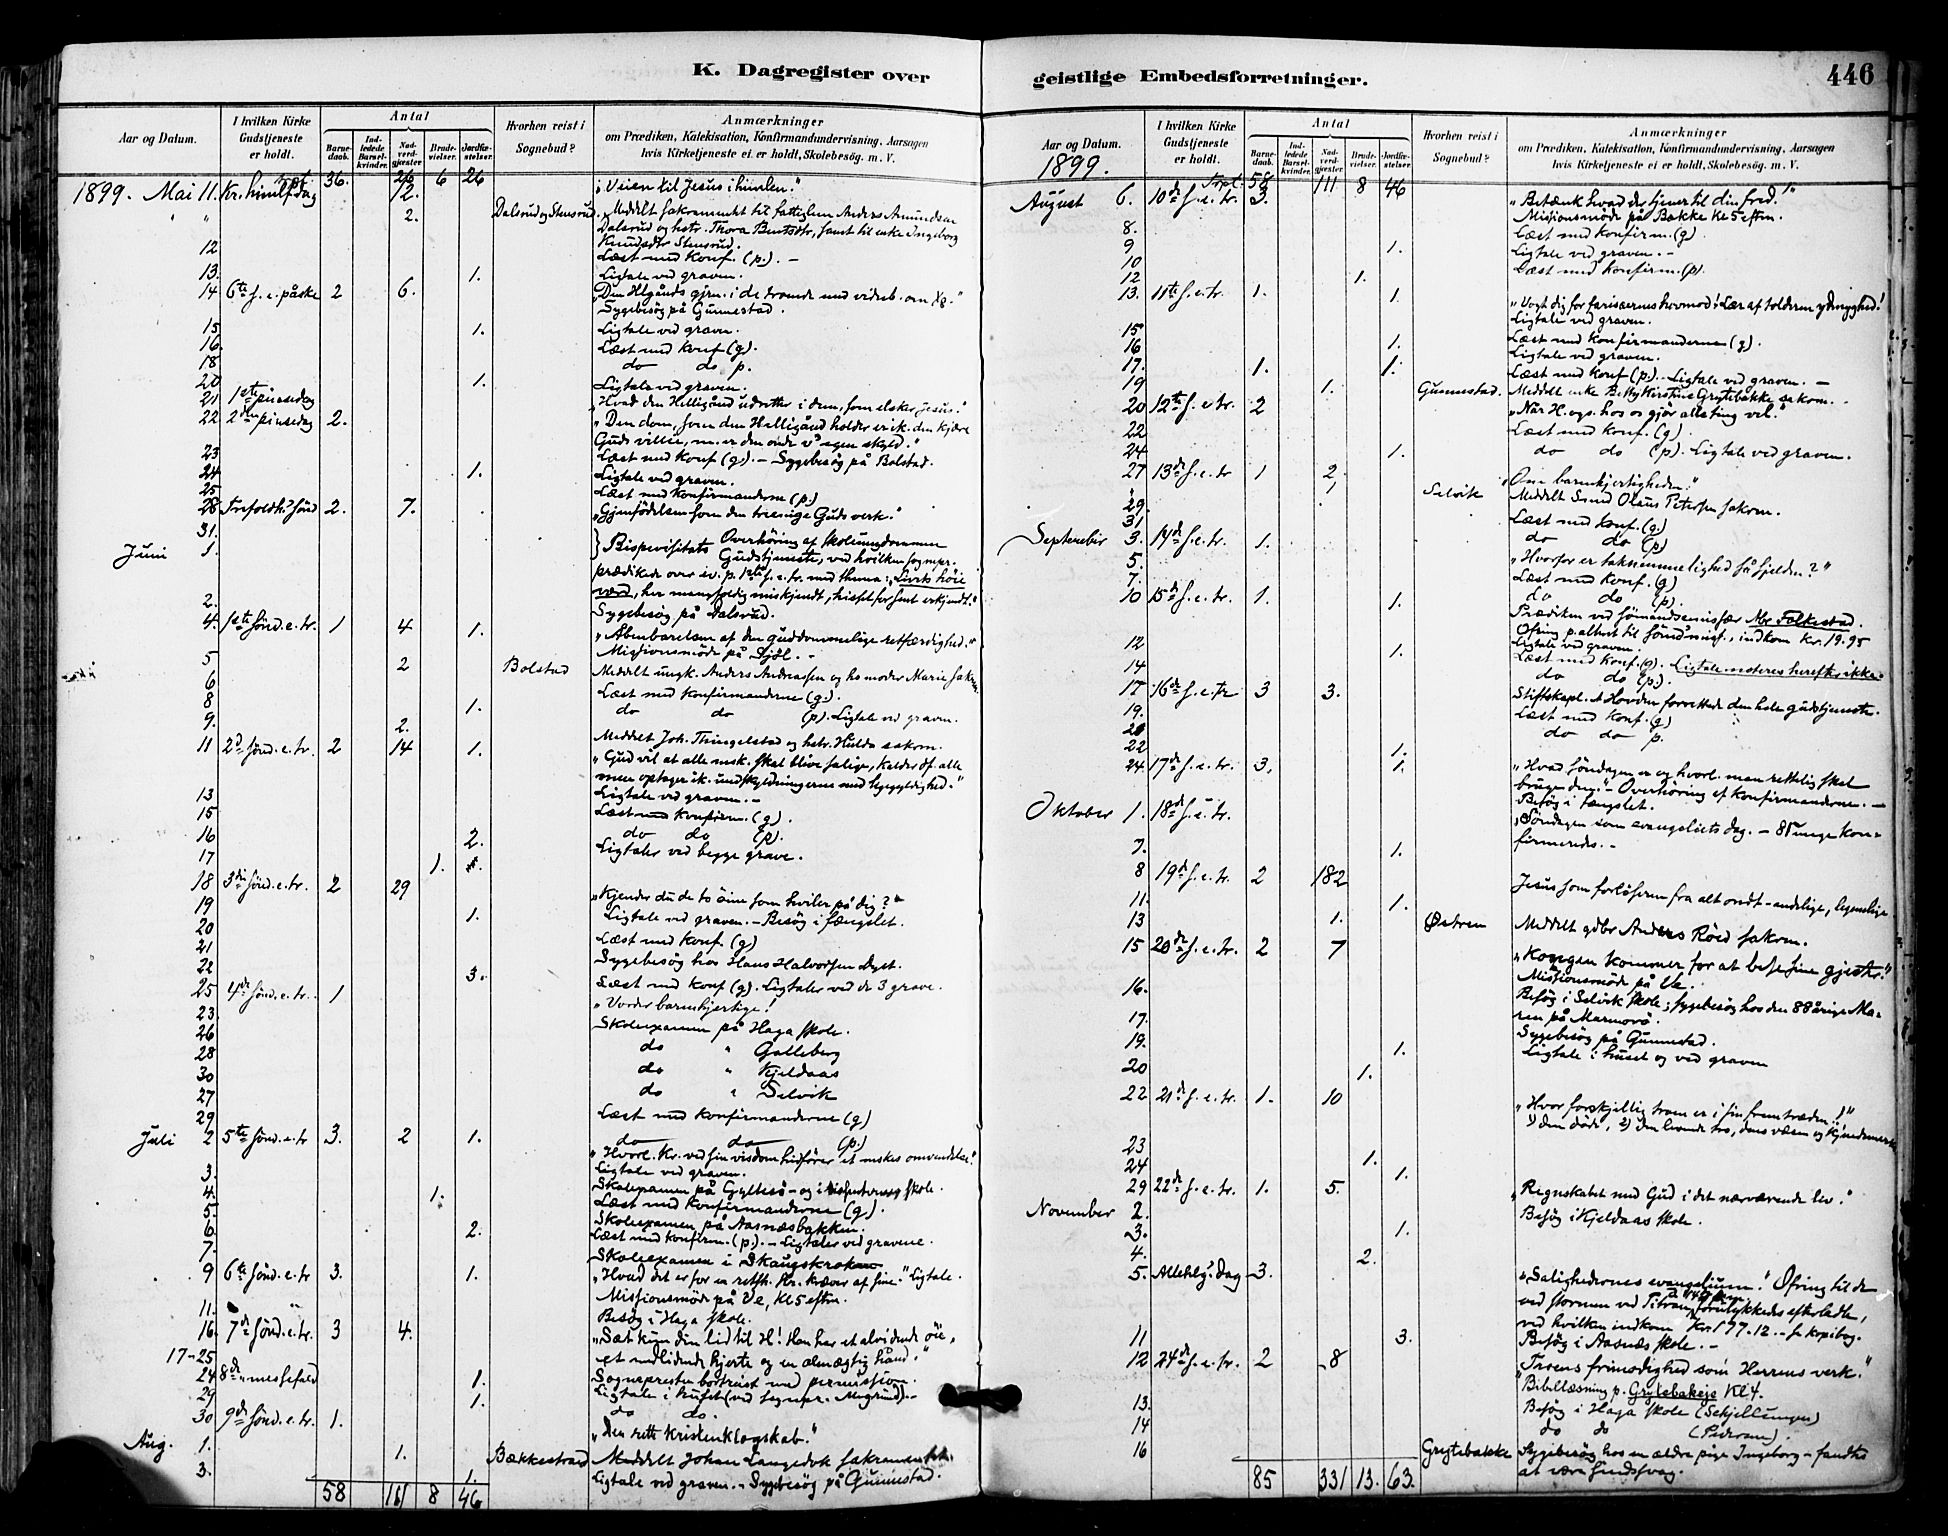 K. Dagregister over
Aar og Datum.
I hvilken Kirke Gudstjeneste er holdt.
Antal
Barnedaab.
Indledede Barselkvinder.
Nadverdgjester
Brudevielser.
Jordfæstelser.
Hvorhen reist i Sognebud?
Anmærkninger
om Prædiken, Katekisation, Konfirmandundervisning, Aarsagen
hvis Kirketjeneste ei er holdt, Skolebesög. m. V.
36. 26 6 26
1899. Mai 11. Kr. himlf.dag 12. "Veien til Jesus i himlen."
" " 2. Dalsrud og Stensrud. Meddelt sakramentet til fattiglem Anders Amundsen
Dalsrud og hstr. Thora Berntsdtr, samt til enke Ingeborg
Knudsdtr Stensrud.
12 Læst med Konf. (p.). –
13. 1. Ligtale ved graven.
14 6te s. e. påske 2 6.
Sygebesög på Gunnestad.
15 1. Ligtale ved graven.
16. Læst med konf (g).
18 do do p.
20 1. Ligtale ved graven.
21 1ste pinsedag "Hvad den Helligånd udretter i dem, som elsker Jesus."
22 2den pinsedag 2. "Den dom, som den Helligånd holder
23 Læst med Konf (g). – Sygebesög på Bolstad.
24 1. Ligtale ved graven.
25 Læst med Konfirmanderne (p.)
28 Trefoldh. sönd 2. 7. "Gjenfödelsen som den treenige Guds verk."
31.
Juni 1. Bispevisitats Overhöring af Skoleungdommen
Gudstjeneste, ved hvilken sognepr.
prædikede over ev. p. 1ste s. e. tr. med thema: "Livets höie
værd, her mangfoldig miskjendt, hisset for sent erkjendt."
2. Sygebesög på Dalsrud.
4. 1ste sönd. e. tr. 1 4 1. "Åbenbarelsen af den guddommelige retfærdighed."
Missionsmöde på Sjöl. –
5 2 Bolstad Meddelt ungk. Anders Andreassen og hs moder Marie sakrm.
6 Læst med Konfirmanderne (g).
8 1. do do (p). Ligtale ved graven.
9. 2. Meddelt Joh. Thingelstad og hstr. Hulda sakrm.
11 2d sönd. e. tr. 2 14 1. "Gud vil at alle msk. skal blive salige, kalder df. alle
men optager ik. undskyldningerne med ligegyldighed."
13 Ligtale ved graven. –
15 Læst med Konfirm. (g).
16 2. do do (p).
17 1. Ligtaler ved begge grave.
18 3die sönd. e. tr. 2 29 "Kjender du de to öine som hviler på dig?"
19 1. Ligtale ved graven. – Besög i fængslet.
20 Læst med konf. (g)
21 Sygebesög hos Hans Halvorsen Dyst.
22 3. Læst med konf (g). Ligtaler ved de 3 grave.
25 4de sönd. e. tr. 1 "Vorder barmhjertige!
23. Skoleexamen på Haga skole.
26 do " Galleberg
28 do " Kjeldaas
30 do " Selvik
27 Læst med konfirmanderne (g)
29 do do (p.)
Juli 2 5te sönd. e. tr 3. 2 1. "Hvorl. Kr. ved sin visdom hidfører et mskes omvendelse."
Ligtale ved graven.
3. Skoleexamen på Gyltesö – og i skole.
4. 1. Læst med Konfirmanderne (g).
5. Skoleexamen på Aasnæsbakken.
6. 2. Læst med konfirm. (p.). – Ligtaler ved gravene.
7. Skoleexamen i Skaugskroken
9 6te sönd. e. tr 3. 1. "Hvad det er for en retfh. Kr. kræver af sine." Ligtale.
Missionsmöde på Ve, Kl 5 eftm.
11. Besög i Haga skole.
16. 7de sönd. e. tr. 3 4. "Sæt kun din lid til H! Han har et alvidende öie,
et medlidende hjerte og en almægtig hånd."
17–25 Sognepresten bortreist med permission.
24 8de " messefald 1. Ligtale i huset (ved sognepr. Megrund). –
29 1. do do.
30 9de sönd. e. tr. 1. "Den rette Kristenklogskab."
Aug. 1. 1. Bækkestrand Meddelt Johan Langedok sakramentet.
3. 1. Ligtale ved graven. – Sygebesög på Gunnestad.
58 111 8 46
geistlige Embedsforretninger.
446
Aar og Datum.
1899.
I hvilken Kirke Gudstjeneste er holdt.
Antal
Barnedaab.
Indledede Barselkvinder.
Nadverdgjester.
Brudevielser.
Jordfæstelser.
Hvorhen reist i Sognebud?
Anmærkninger
om Prædiken, Katekisation, Konfirmandundervisning, Aarsagen
hvis Kirketjeneste ei er holdt, Skolebesög. m. V.
Trspt. 58 111 8 46
August 6. 10de s. e. tr. 3. "Betænk hvad der tjener til din fred!"
Missionsmöde på Bakke Kl 5 eftm.
8. Læst med konfirm. (g)
9 1. Ligtale ved graven. –
10 Læst med konfirm. (p).
12 1.
13. 11te s. e. tr. 1. 1. "Vogt dig for farisæernes hovmod! Lær af tolderen ydmyghed!
Ligtale ved graven.
15 Læst med Konfirmanderne (g).
16 1. Ligtale ved graven.
17. 1. 1. Læst med Konf (p.). – Ligtale ved graven. –
19 1. Gunnestad. Meddelt enke Betty Kirstine Grytebakke sakrm.
20 12te s. e. tr. 2 "Når H. ogs. hos os gjör alle ting vel."
22 Læst med Konf. (g)
24 1. do do (p). Ligtale ved graven.
27 13de s. e. tr 1 2. "Om barmhjertigheden."
" 1 Selvik Meddelt Smed Olaus Petersen sakrm.
29. Læst med Konf. (g.)
31 do do (p)
September 3. 14de s. e. tr. 1. "Hvorfor er taknemmelighed så sjelden?"
5. Læst med Konf. (g)
7. do do (p).
10 15de s. e. tr. 1. 1. Prædiken ved sömandsemissær Mr Falkestad.
Ofring p. alteret til sömdsmiss., indkom kr. 19.95
Ligtale ved graven.
12 1. Læst med konf. (g). Ligtale noteres herefter ikke.
14 do do (p).
17 16de s. e. tr 3 3. Stiftskapl. A Hovden forrettede den hele gudstjeneste.
19. Læst med Konf. (g)
21 do do p.
22 1.
24 17de s. e. tr. 3. 1. "Hvad söndagen er og hvorl. man rettelig skal
bruge den." – Overhöring af konfirmanderne. –
Besög i fængslet.
Oktober 1. 18de s. e. tr. "Söndagen som evangeliets dag. – 85 unge kon-
firmereds. –
7. 1.
8 19de s. e. tr. 2 182 Jesus som forlöseren fra alt ondt – andelige, legemlige
11. 1.
13 1. Østren Meddelt gdbr Anders Röed sakrm.
15 20de s. e. tr. 2 7 "Kongen kommer for at bese sine gjester."
Missionsmöde på Ve.
16. Besög i Selvik skole; sygebesög hos den 88 årige Ma-
ren på Marmorö.
17. Sygebesög på Gunnestad.
19. 1. Ligtale i huset og ved graven
20 1.
22 21de s. e. tr. 1. 10 "Hvor forskjellig troen er i sin fremtræden!"
1) den döde, 2) den levende tro, dens væsen og kjendemærke
23
24 1.
29 22de s. e. tr. 1. 5. 1. "Regnskabet med Gud i det nærværende liv."
November 2. Besög i Kjeldaas skole.
3. 1.
4. 2.
5. Allehlg.s dag 3. "Salighedernes evangelium." Ofring til de
ved stormen ved Titran forulykkedes efterladte,
ved hvilken indkom Kr 177.12. – se kopibog.
11 3. Besög i Aasnæs skole. –
12 24de s. e. tr. 2 8 "Troens frimodighed som Herrens verk."
"Bibellæsning p. Grytebakeje Kl 4.
13. Besög i Haga skole (Schjellungen)
14 do do (Pedersen).
16 Grytebakke Sygebesög hos en ældre pige Ingeborg – fandtes
at være sindssvag.
85 331 13. 63.